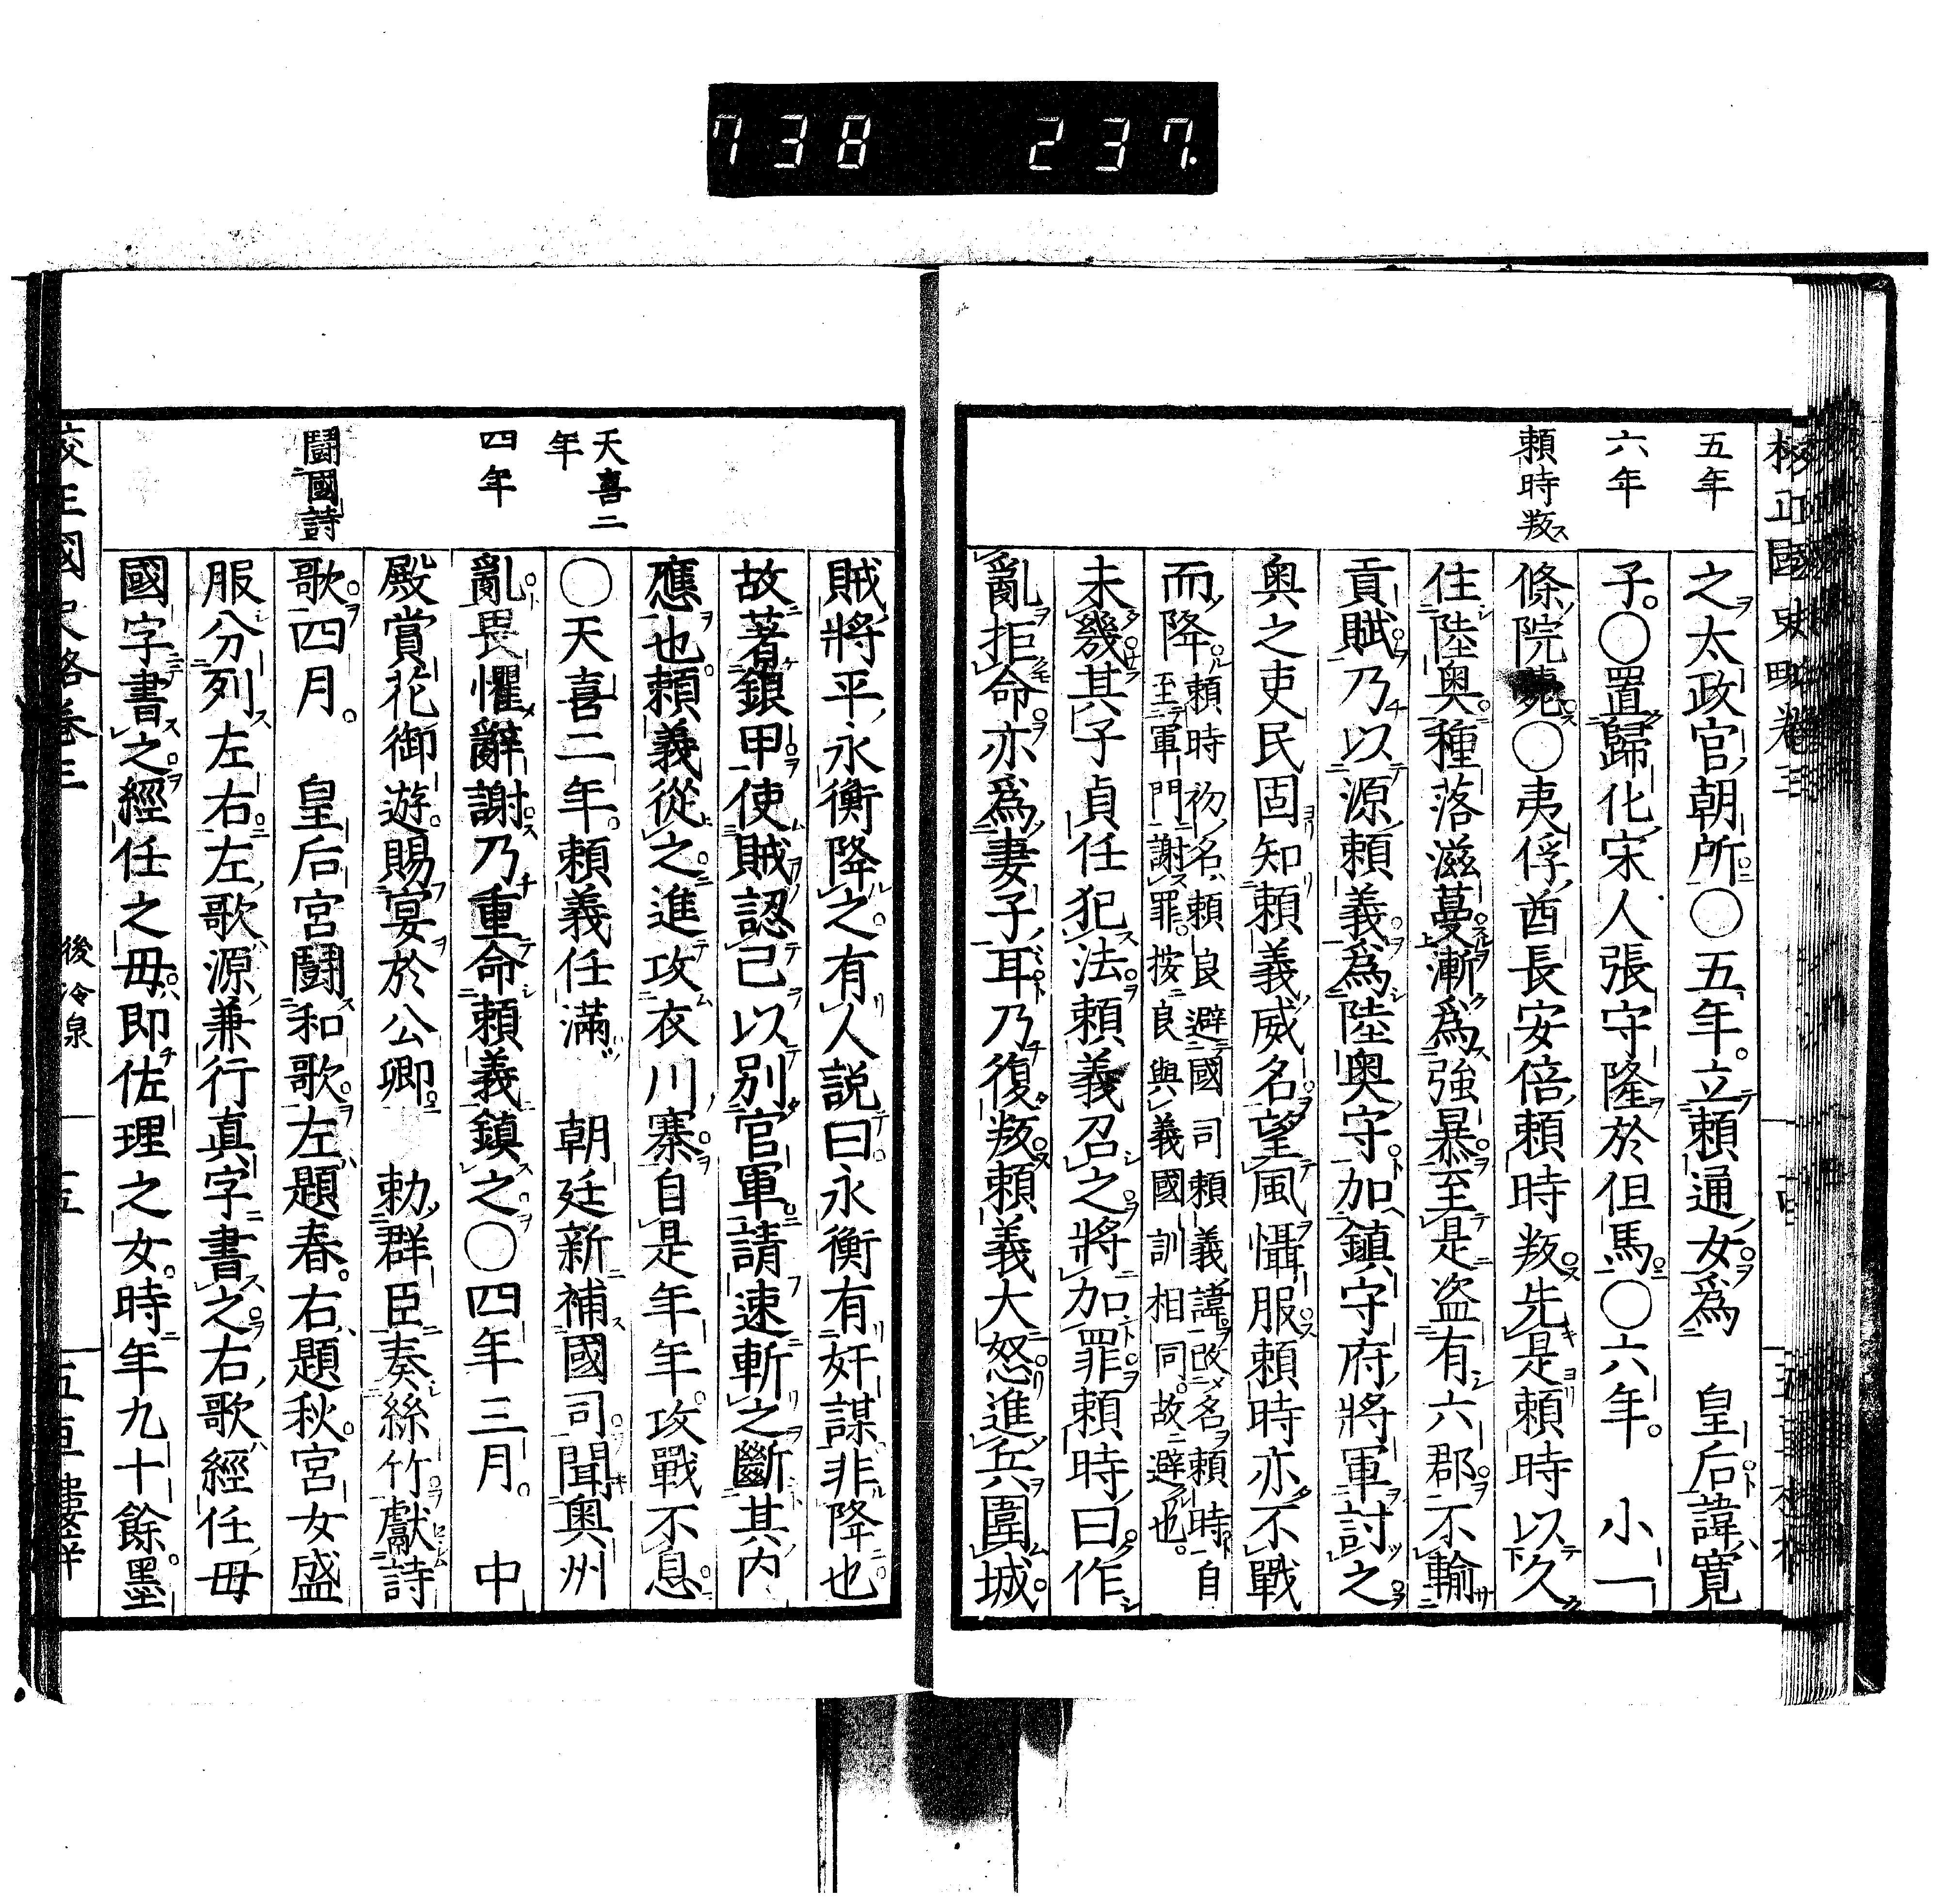 738 237.
校正國史略卷三
五年
六年
頼時叛ス
之太政官朝所○五年立頼通女爲 皇后諱寬
子○置歸化宋人張守隆於但馬○六年 小一
條院薨○夷俘酋長安倍頼時叛先是頼時以久
住陸奥種落滋蔓漸爲強暴至是盜有六郡不輸
貢賦乃以源頼義爲陸奥守加鎮守府將軍討之
奥之吏民固知頼義威名望風懾服頼時亦不戰
而降頼時初名頼良避國司頼義諱改名頼時自
至軍門謝罪按良與義國訓相同故避也
未幾其子貞任犯法頼義召之將加罪頼時曰作
亂拒命亦爲妻子耳乃復叛頼義大怒進兵圍城
天喜二
年
四年
鬪國詩
賊將平永衡降之有人説曰永衡有奸謀非降也
故著鎖甲使賊認己以別官軍請速斬之斷其内
應也頼義從之進攻衣川寨自是年年攻戰不息
○天喜二年頼義任滿 朝廷新補國司聞奥州
亂畏懼辭謝乃重命頼義鎮之○四年三月 中
殿賞花御遊賜宴於公卿 勅群臣奏絲竹獻詩
歌四月 皇后宮鬪和歌左題春右題秋宮女盛
服分列左右左歌源兼行真字書之右歌經任毋
國字書之經任之毋即佐理之女時年九十餘墨
校正國史略卷三 後冷泉 五車樓梓